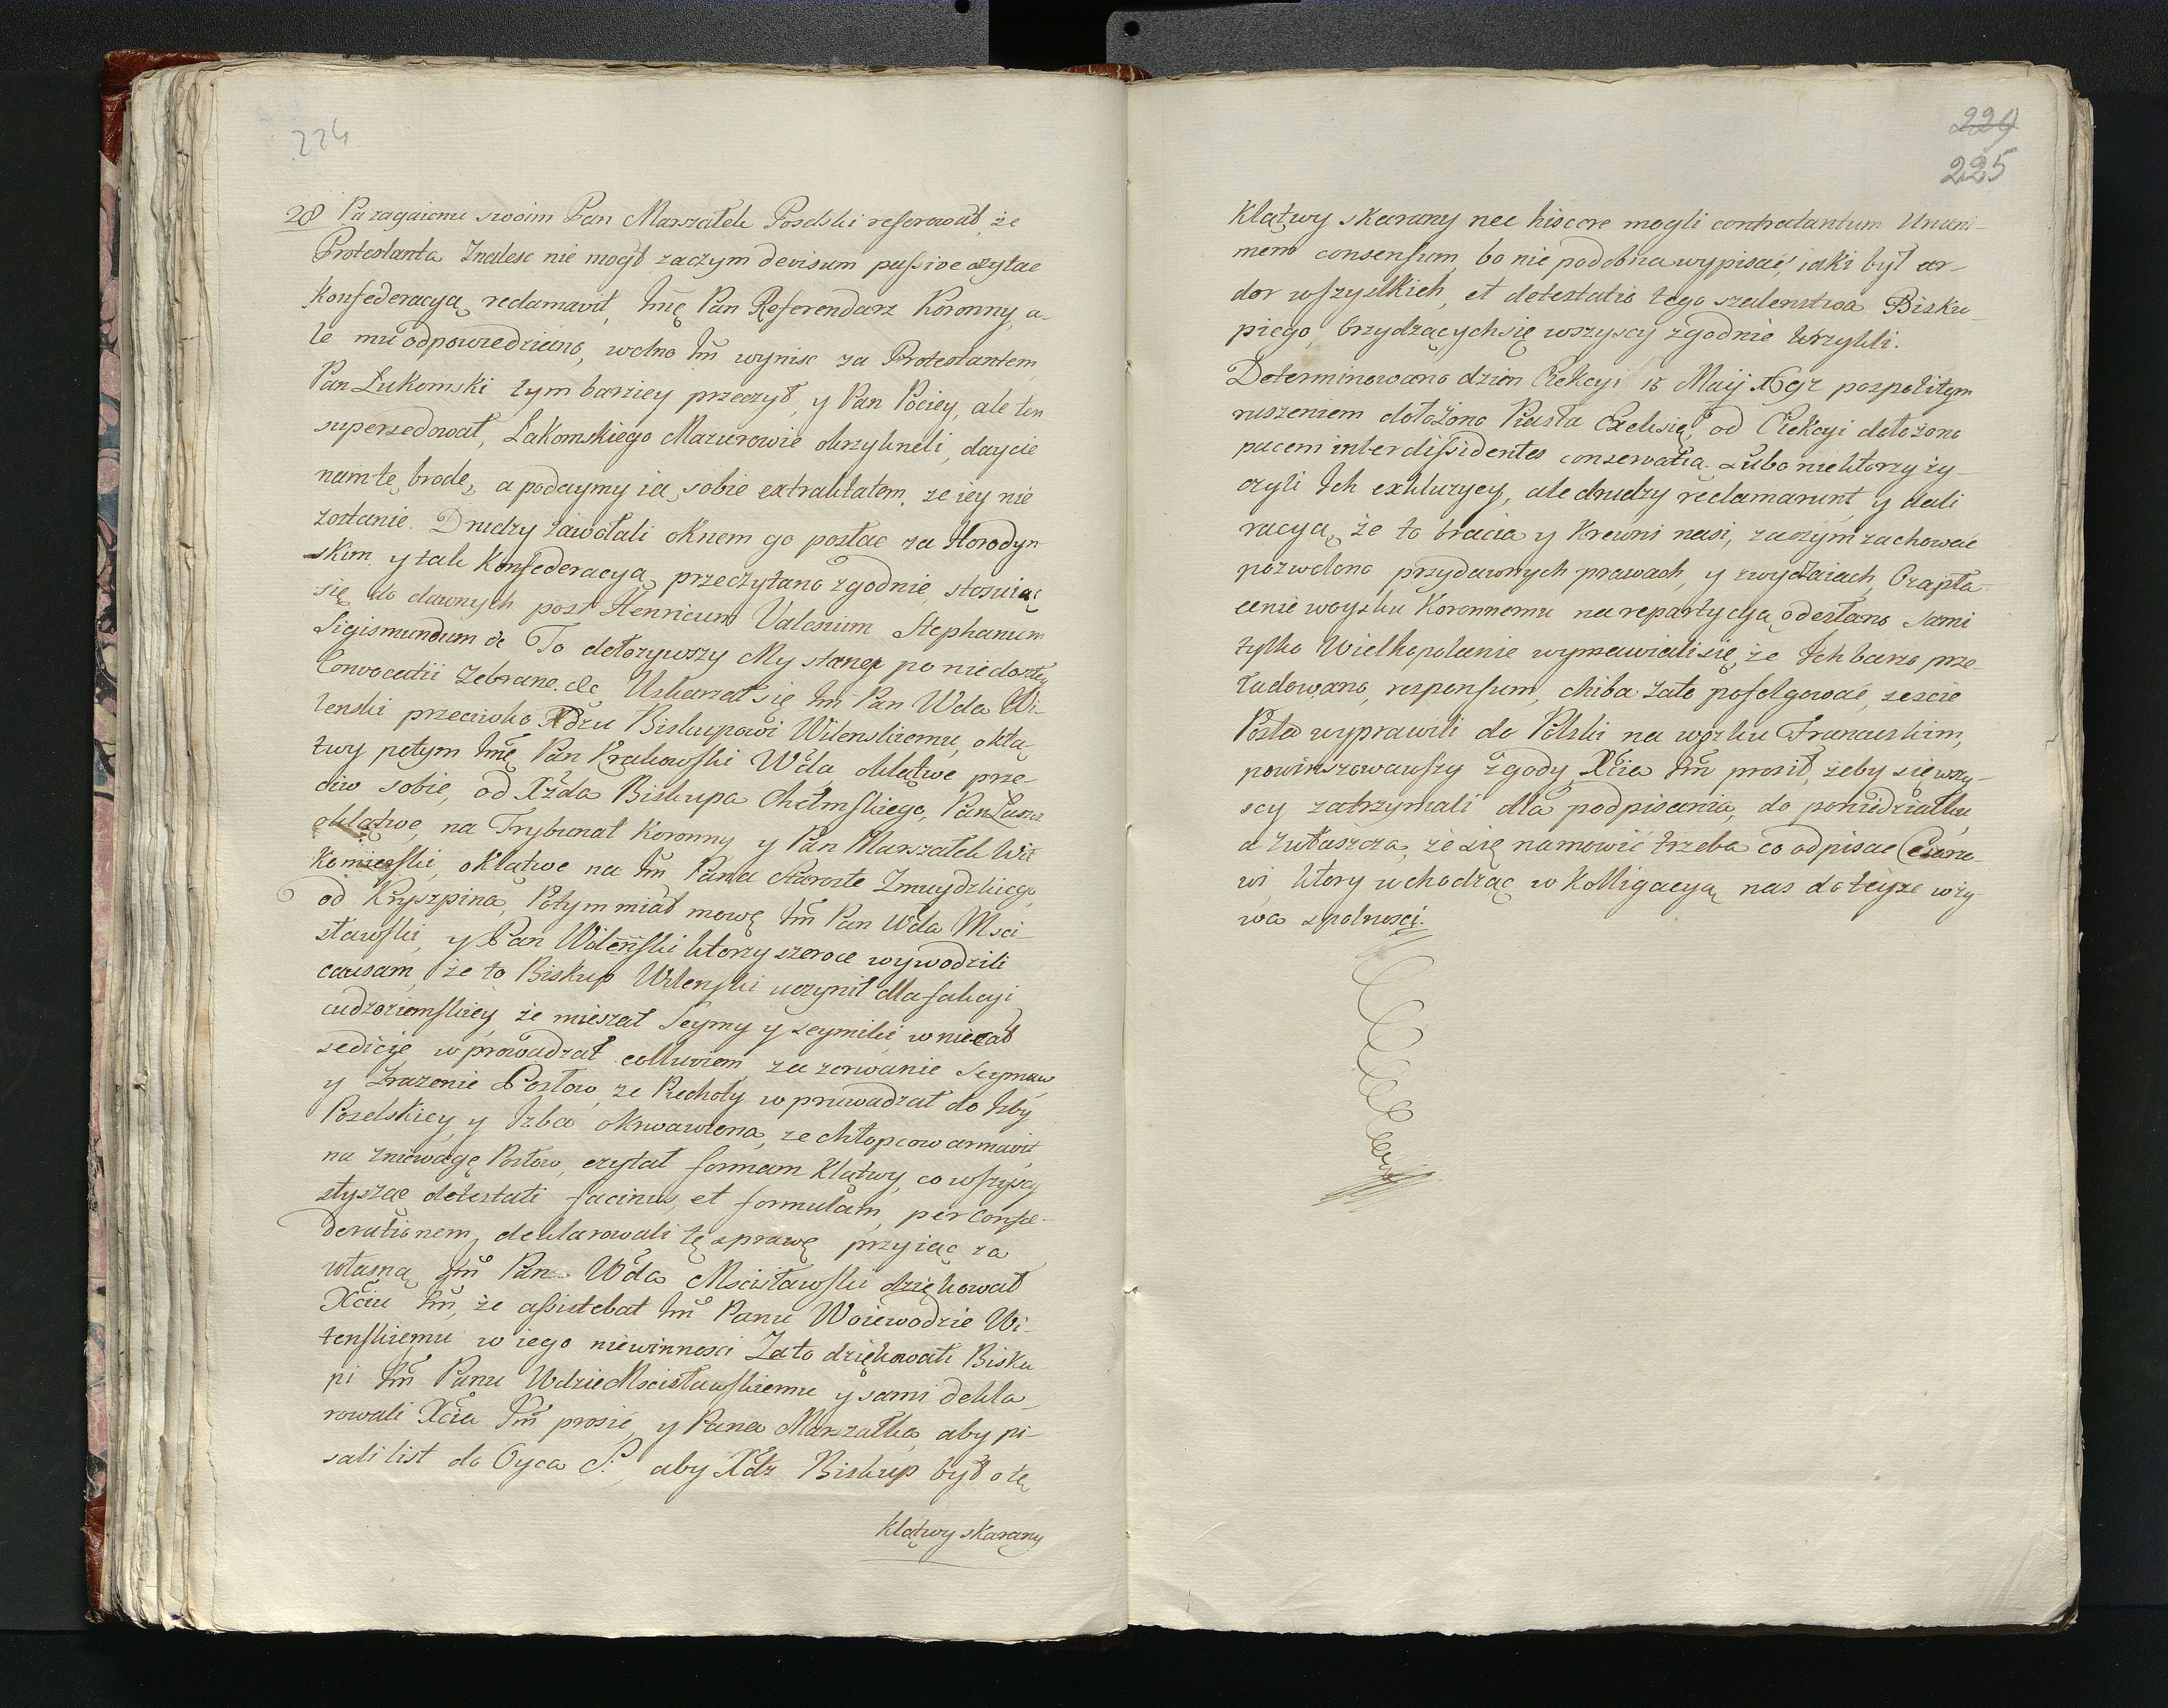 224
28 Pa zagaieniu swoim Pan Marszałek Poselski referował, że
Protestanta Znalesc nie mogł zaczym devisum passive czytac
Konfederacyą reclamavit, Jmę Pan Referendarz Koronny, a-
le mu odpowiedziano, wolno Jm̃ wynisc za Protestantem
Pan Łukomski tym barziey przeczył, y Pan Pociey, ale ten
supersedował, Łakomskiego Mazurowie okrzykneli, daycie
nam tę brodę, a podaymy ią sobie extraktatem, ze iey nie
zostanie. Drudzy zawołali oknem go posłac za Horodyn-
skim, y tak Konfederacyą przeczytano zgodnie, stosuiąc
się do dawnych post Henricum Valesium Stephanum
Sigismundum &c To dołozywszy My stany po niedoszłey
Convocatii Zebrane. &c Uskarzał się Jm̃ Pan Wda Wi-
lenski przeciwko Xdzu Biskupowi Wilenskiemu, o klą-
twy potym Jmę Pan Krakowski Wda o klątwe prze-
ciw sobie, od Xzda Biskupa Chełmskiego, Pan
o klątwę, na Trybunał Koronny y Pan Marszałek Wił
Komierski, o klątwe na Jm̃ Pana Staroste Zmuydzkiego,
od Kryszpina, Potym miał mowę Jm̃ Pan Wda Msci-
sławski, y Pan Wileński ktorzy szeroce wywodzili
causam, że to Biskup Wilenski uczynił dla fakcyi
cudzoziemskiey, że mieszał Seymy y seymiki, wniecał
sedicię, wprowadzał colluviem, za zerwanie Seymow
y Zrazenie Posłow, ze Piechoty wprowadzał do Izby
Poselskiey, y Izba okrwawiona, ze chłopcow armavit
na zniewagę Posłow, czytał formam klątwy, co wszyscy
słysząc detestati facinus, et formulam, per Confe-
derationem, deklarowali tę sprawę przyiąc za
własną Jm̃ Pan Wda Mscisławski dziękował
Xciu Jm̃, że assistebat Jm̃ Panu Woiewodzie Wi-
lenskiemu w iego niewinnosci Za to dziękowali Bisku-
pi Jm̃ Panu Wdzie Mscisławskiemu y sami dekla-
rowali Xcia Jm̃ prosić, y Pana Marszałka, aby pi-
sali list do Oyca S. aby Xdz Biskup był o tę
klątwy skarany
229
225
Klątwy skarany nec hiscere mogli contra tantum Unani-
mem consensum, bo nie podobna wypisać, iaki był ar-
dor wszystkich, et detestatio tego szalenstwa Bisku-
piego, brzydzących się wszyscy zgodnie krzykli.
Determinowano dzien Elekcyi 15 Maij 1697 pospolitym
ruszeniem dołożono Piasta Excelsię, od Elekcyi dołożono
pacem inter dissidentes conservatia. Lubo niektorzy ży-
czyli Ich exkluzyey, ale drudzy reclamarunt, y dali
racyą, że to bracia y Krewni nasi, zaczym zachowac
pozwolono przy dawnych prawach, y zwyczaiach, O zapła-
cenie woysku Koronnemu na repartycyą odesłano Sami
tylko Wielkopolanie wymawiali się, że Ich barzo prze-
ładowano, respensum, chiba za to pofolgować, zescie
Posła wyprawili do Polski na wozku Francuskim,
powinszowawszy zgody, Xcia Jm̃ prosił, żeby się wszy-
scy zatrzymali dla podpisania, do poniedziałku
a zwłaszcza, że się namowić trzeba co odpisac Cesarzo-
wi, ktory wchodząc w Kolligacyą nas do teyże wzy-
wa spolnosci.